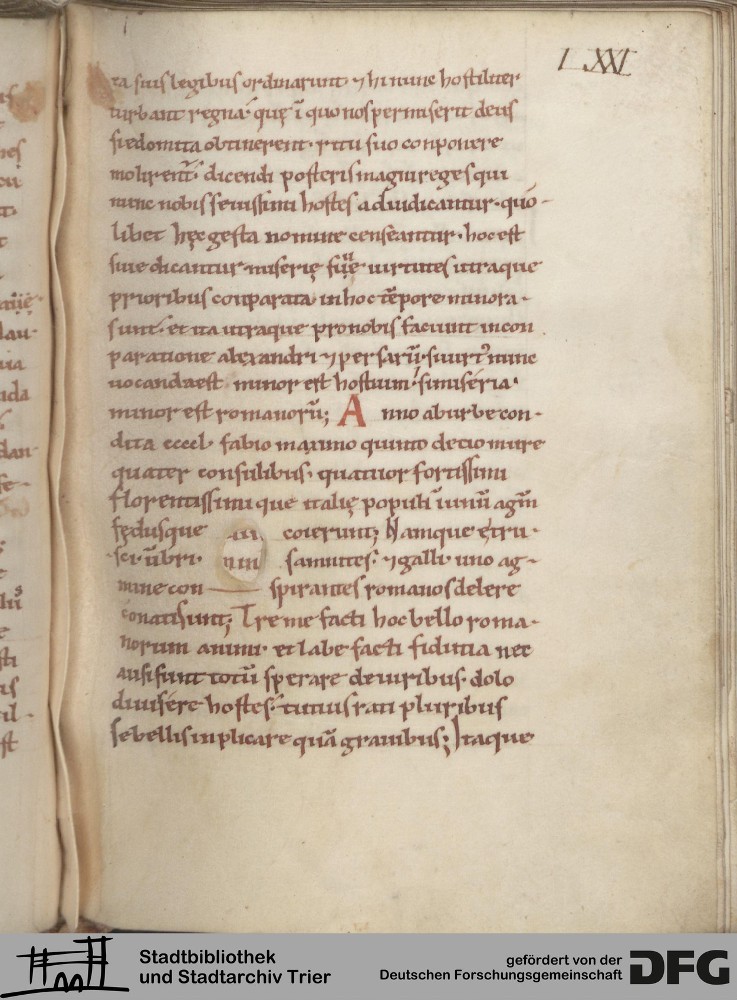 LXXI
ra suis legibus ordinarunt ⁊ hi nunc hostiliter
turbant regna· quę ī quo nos permiserit deus
si edomita obtinerent· ritu suo conponere
molirent̄· dicendi posteris magni reges qui
nunc nobis seuissimi hostes adiudicantur· quo-
libet hęc gesta nomine censeantur· hoc est
siue dicantur miserię siue uirtutes utraque
prioribus conparata in hoc tēpore minora-
sunt· et ita utraque pro nobis faciunt in con
paratione alexandri ⁊ persarū· si uirtꝰ nunc
uocanda est minor est hostium· si miseria·
minor est romanorū; Anno ab urbe con-
dita ccccl fabio maximo quinto decio mure
quater consulibus· quatuor fortissimi
florentissimi que italię populi ī unū agm̄
fędusque coierunt; Namque ętru-
sci· ūbri· samnites· ⁊ galli uno ag-
mine con spirantes romanos delere
conati sunt; Tremefacti hoc bello roma-
norum animi· et labefacti fidutia nec
ausi sunt totū sperare de uiribus· dolo
diuisere hostes· tutius rati pluribus
se bellis inplicare quā grauibus; Itaque
Stadtbibliothek
und Stadtarchiv Trier
gefördert von der
Deutschen Forschungsgemeinschaft
DFG